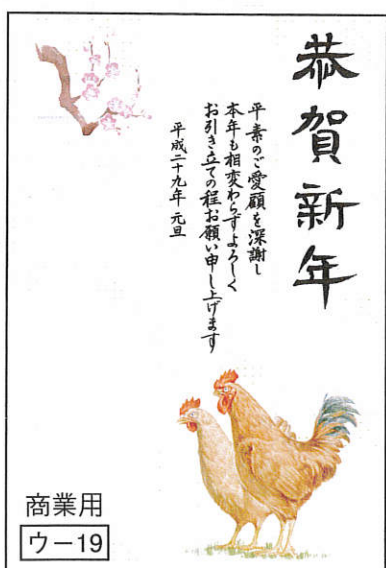 恭賀新年
平素のご愛顧を深謝し
本年も相変わらずよろしく
お引き立ての程お願い申し上げます
平成二十九年 元旦
商業用
ウー19